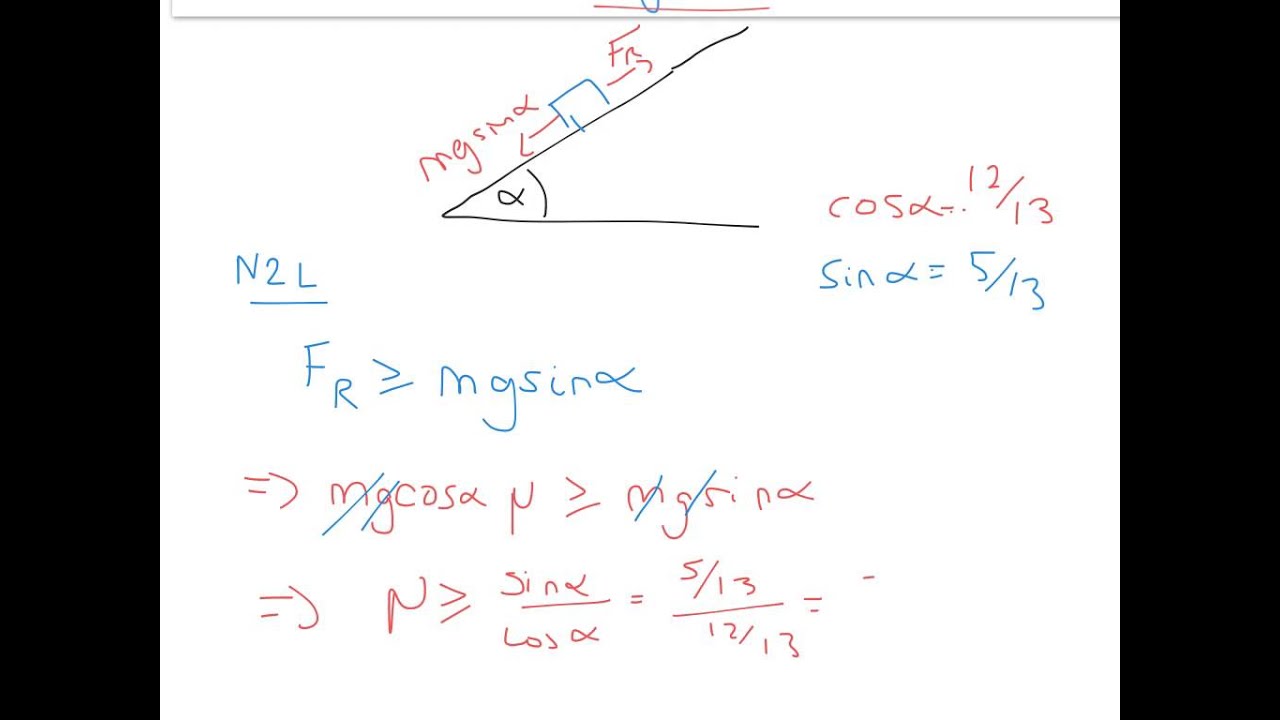 FR
mgsinα
α
cosα = 12/13
sinα = 5/13
N2L
FR ≥ mgsinα
=> mgcosα μ ≥ mgsinα
=> μ ≥ sinα/cosα = 5/13 / 12/13 =